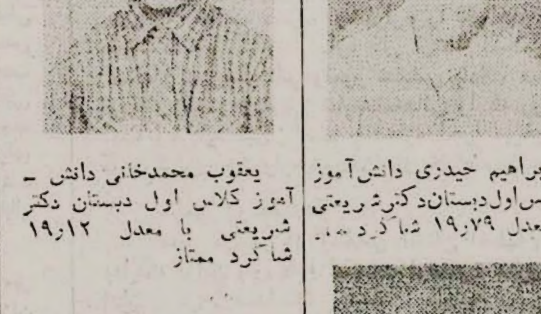 براهیم حیدری دانش‌آموز
س‌اول دبستان دکتر شریعتی
معدل ۱۹٫۷۹ شاگرد
یعقوب محمدخانی دانش ـ
آموز کلاس اول دبستان دکتر
شریعتی با معدل ۱۹٫۱۲
شاگرد ممتاز